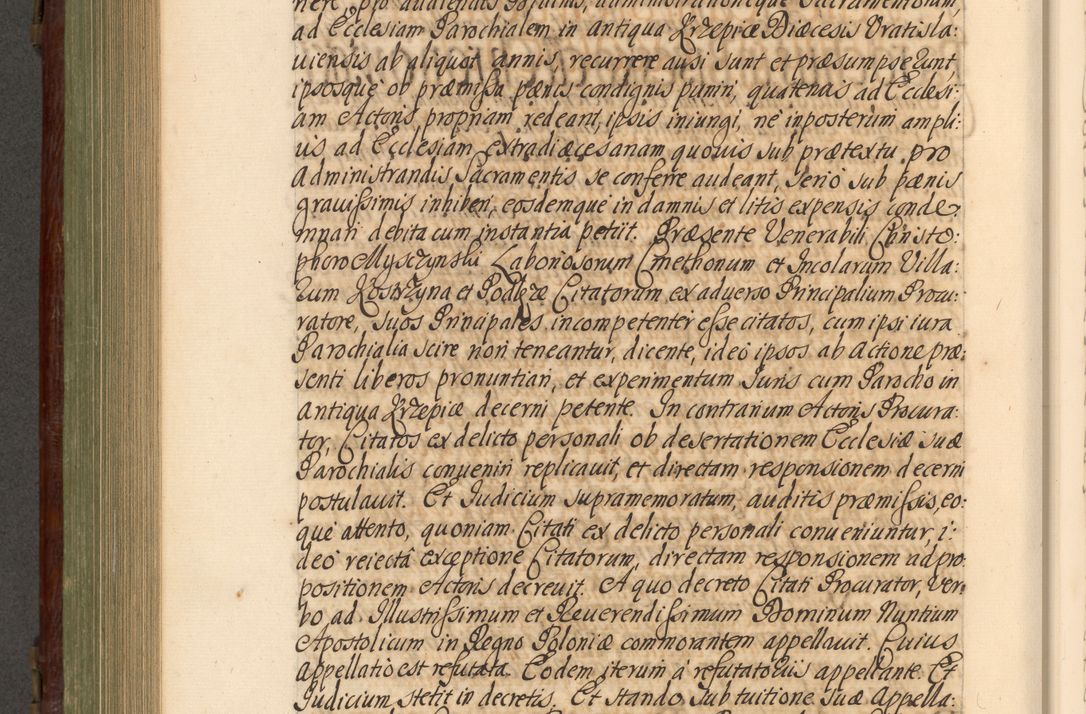 ad Ecclesiam Parochialem in antiqua Krzepicæ Diæcesis Uratisla:
uiensis ab aliquot annis, recurrere ausi sunt et præsumpserunt,
ipsosque ob præmissa pænis condignis puniri, quatenus ad Ecclesi:
am Actoris propriam redeant, ipsis iniungi, ne inposterum ampli:
us ad Ecclesiam extradiæcesanam quouis sub prætextu pro
Administrandis Sacramentis se conferre audeant, serio sub pænis
grauissimis inhiberi, eosdemque in damnis et litis expensis conde
mnari debita cum instantia petiit. Præsente Venerabili Christo:
phoro Mysczynski Laboriosorum Cmethonum et Incolarum Villa:
rum Kostrzyna et Podlęze Citatorum ex aduerso Principalium Procu:
ratore, suos Principales incompetenter esse citatos, cum ipsi iura
Parochialia scire non teneantur, dicente, ideo ipsos ab Actione præ:
senti liberos pronuntiari, et experimentum Iuris cum Parocho in
antiqua Krzepicæ decerni petente. In contrarium Actoris Procura:
tor, Citatos ex delicto personali ob desertationem Ecclesiæ suæ
Parochialis conueniri replicauit, et directam responsionem decerni
postulauit. Et Iudicium supramemoratum, auditis præmissis, eo:
que attento, quoniam Citati ex delicto personali conueniuntur, i:
deo reiectâ exceptione Citatorum, directam responsionem ad pro
positionem Actoris decreuit. A quo decreto Citati Procurator, ver:
bo ad Illustrissimum et Reuerendissimum Dominum Nuntium
Apostolicum in Regno Poloniæ commorantem appellauit. Cuius
Appellatio est refutata. Eodem iterum à refutatoriis appellante. Et
Iudicium stetit in decretis. Et stando sub tuitione suæ Appella: